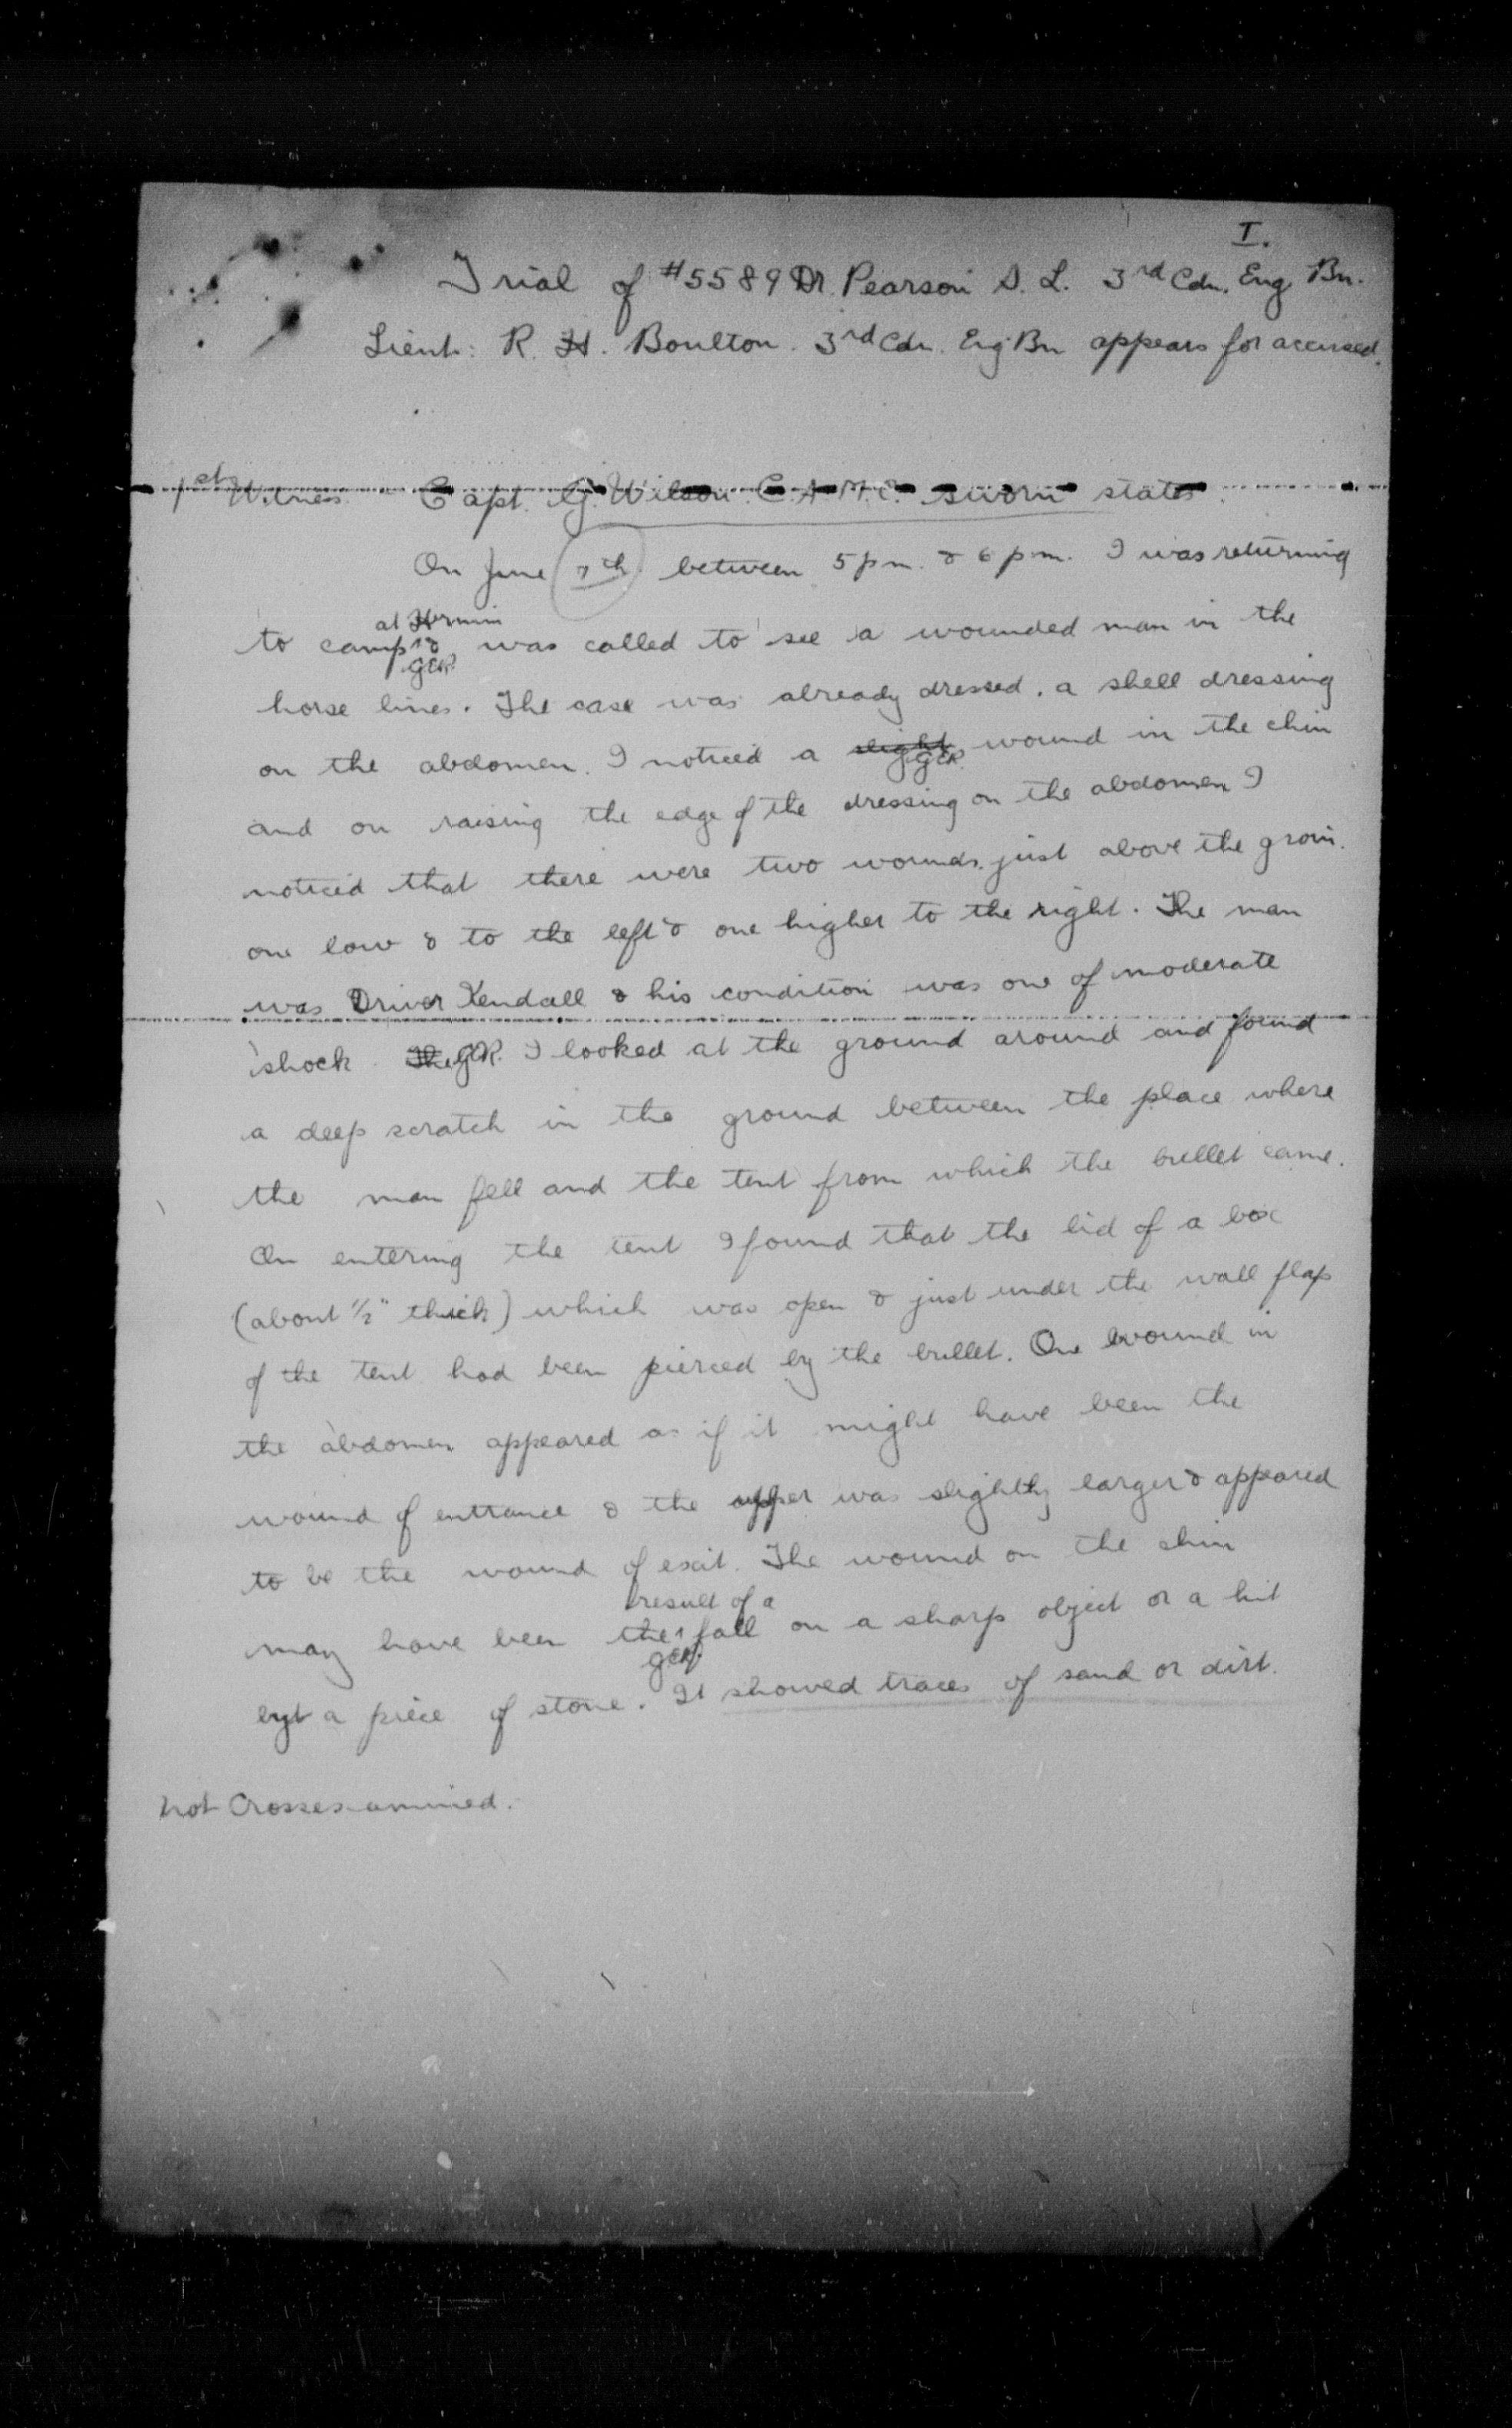 I.
Trial of #5589 Dr. Pearson S. L. 3rd Cdn. Eng Bn.
Lieut: R. H. Boulton. 3rd Cdn. Eng Bn appears for accused.
1st Witness Capt. G. Wilson. C.A.M.C. sworn states.
On June 7th between 5 pm. & 6 pm. I was returning
at Hermin
to camp & was called to see a wounded man in the
GCR
horse lines. The case was already dressed, a shell dressing
on the abdomen. I noticed a slight wound in the chin
GCR
and on raising the edge of the dressing on the abdomen I
noticed that there were two wounds just above the groin.
one low & to the left & one higher to the right. The man
was Driver Kendall & his condition was one of moderate
shock. The GCR. I looked at the ground around and found
a deep scratch in the ground between the place where
the man fell and the tent from which the bullet came.
On entering the tent I found that the lid of a box
(about 1/2" thick) which was open & just under the wall flap
of the tent had been pierced by the bullet. One wound in
the abdomen appeared as if it might have been the
wound of entrance & the upper was slightly larger & appeared
to be the wound of exit. The wound on the chin
result of a
may have been the fall on a sharp object or a hit
GCR.
by a piece of stone. It showed traces of sand or dirt.
Not Crossexamined.